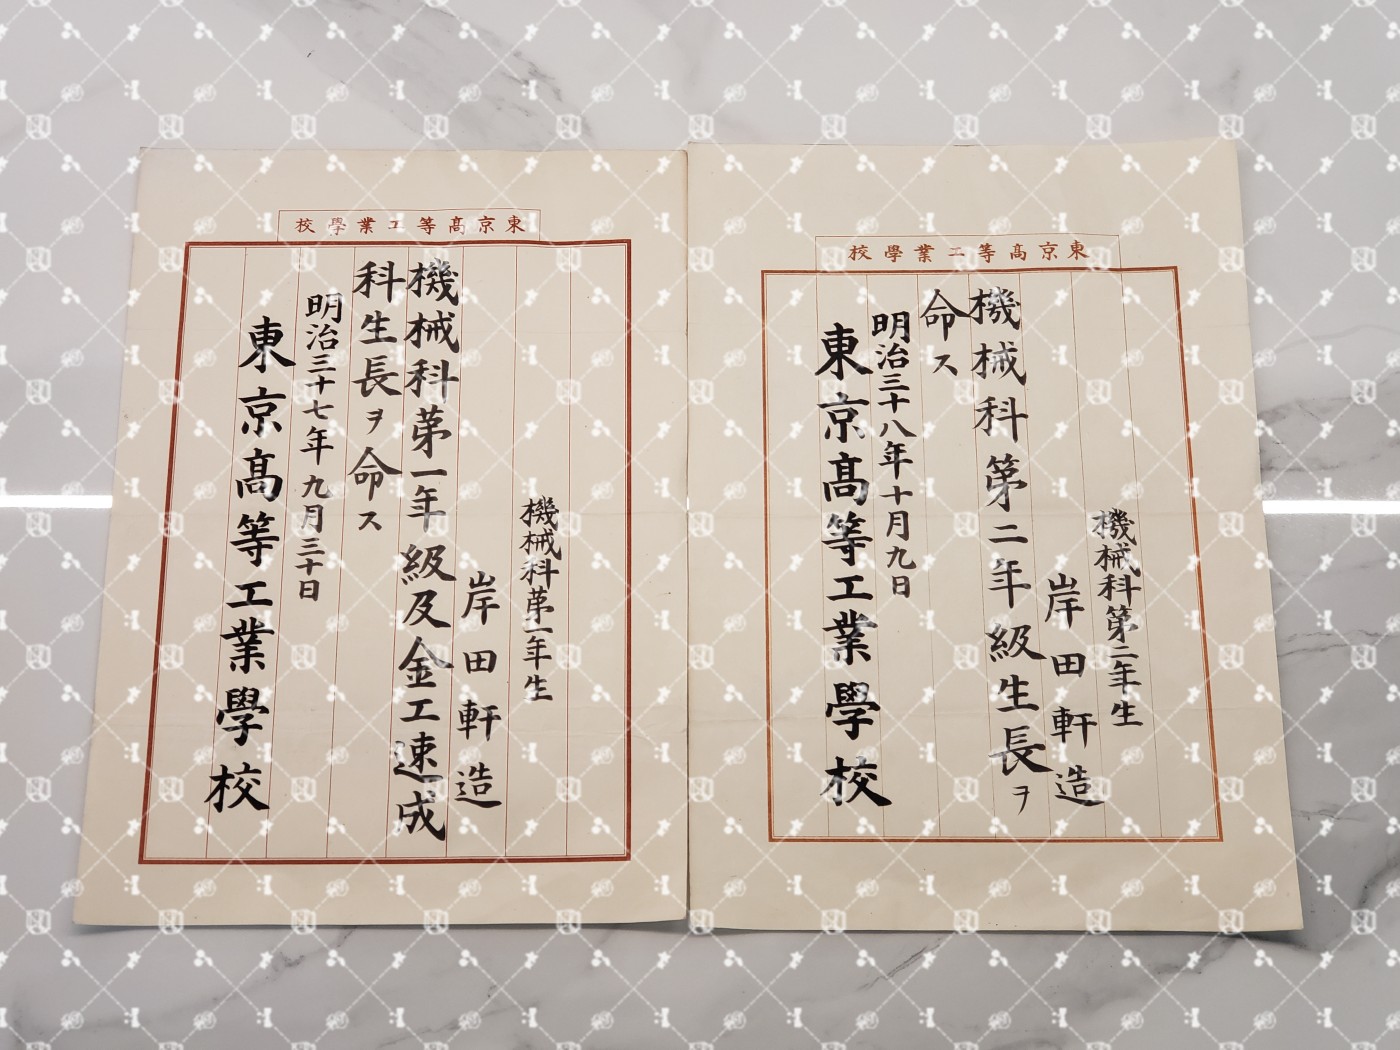 東京髙等工業學校
機械科第二年生
岸田軒造
機械科第二年級生長ヲ
命ス
明治三十八年十月九日
東京髙等工業學校
東京髙等工業學校
機械科苐一年生
岸田軒造
機械科苐一年級及金工速成
科生長ヲ命ス
明治三十七年九月三十日
東京髙等工業學校